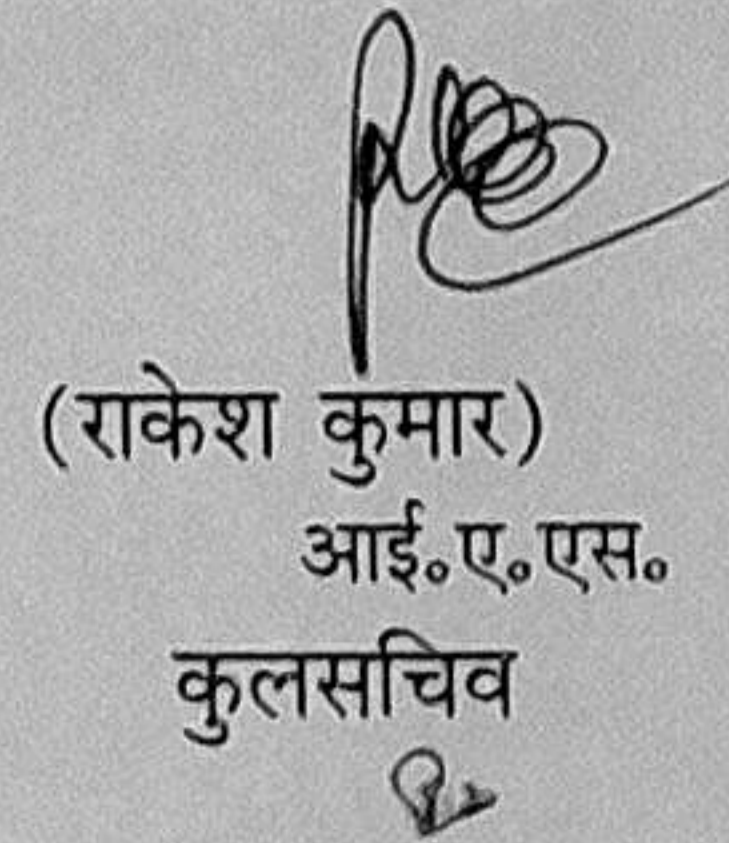 (राकेश कुमार)
आई०ए०एस०
कुलसचिव